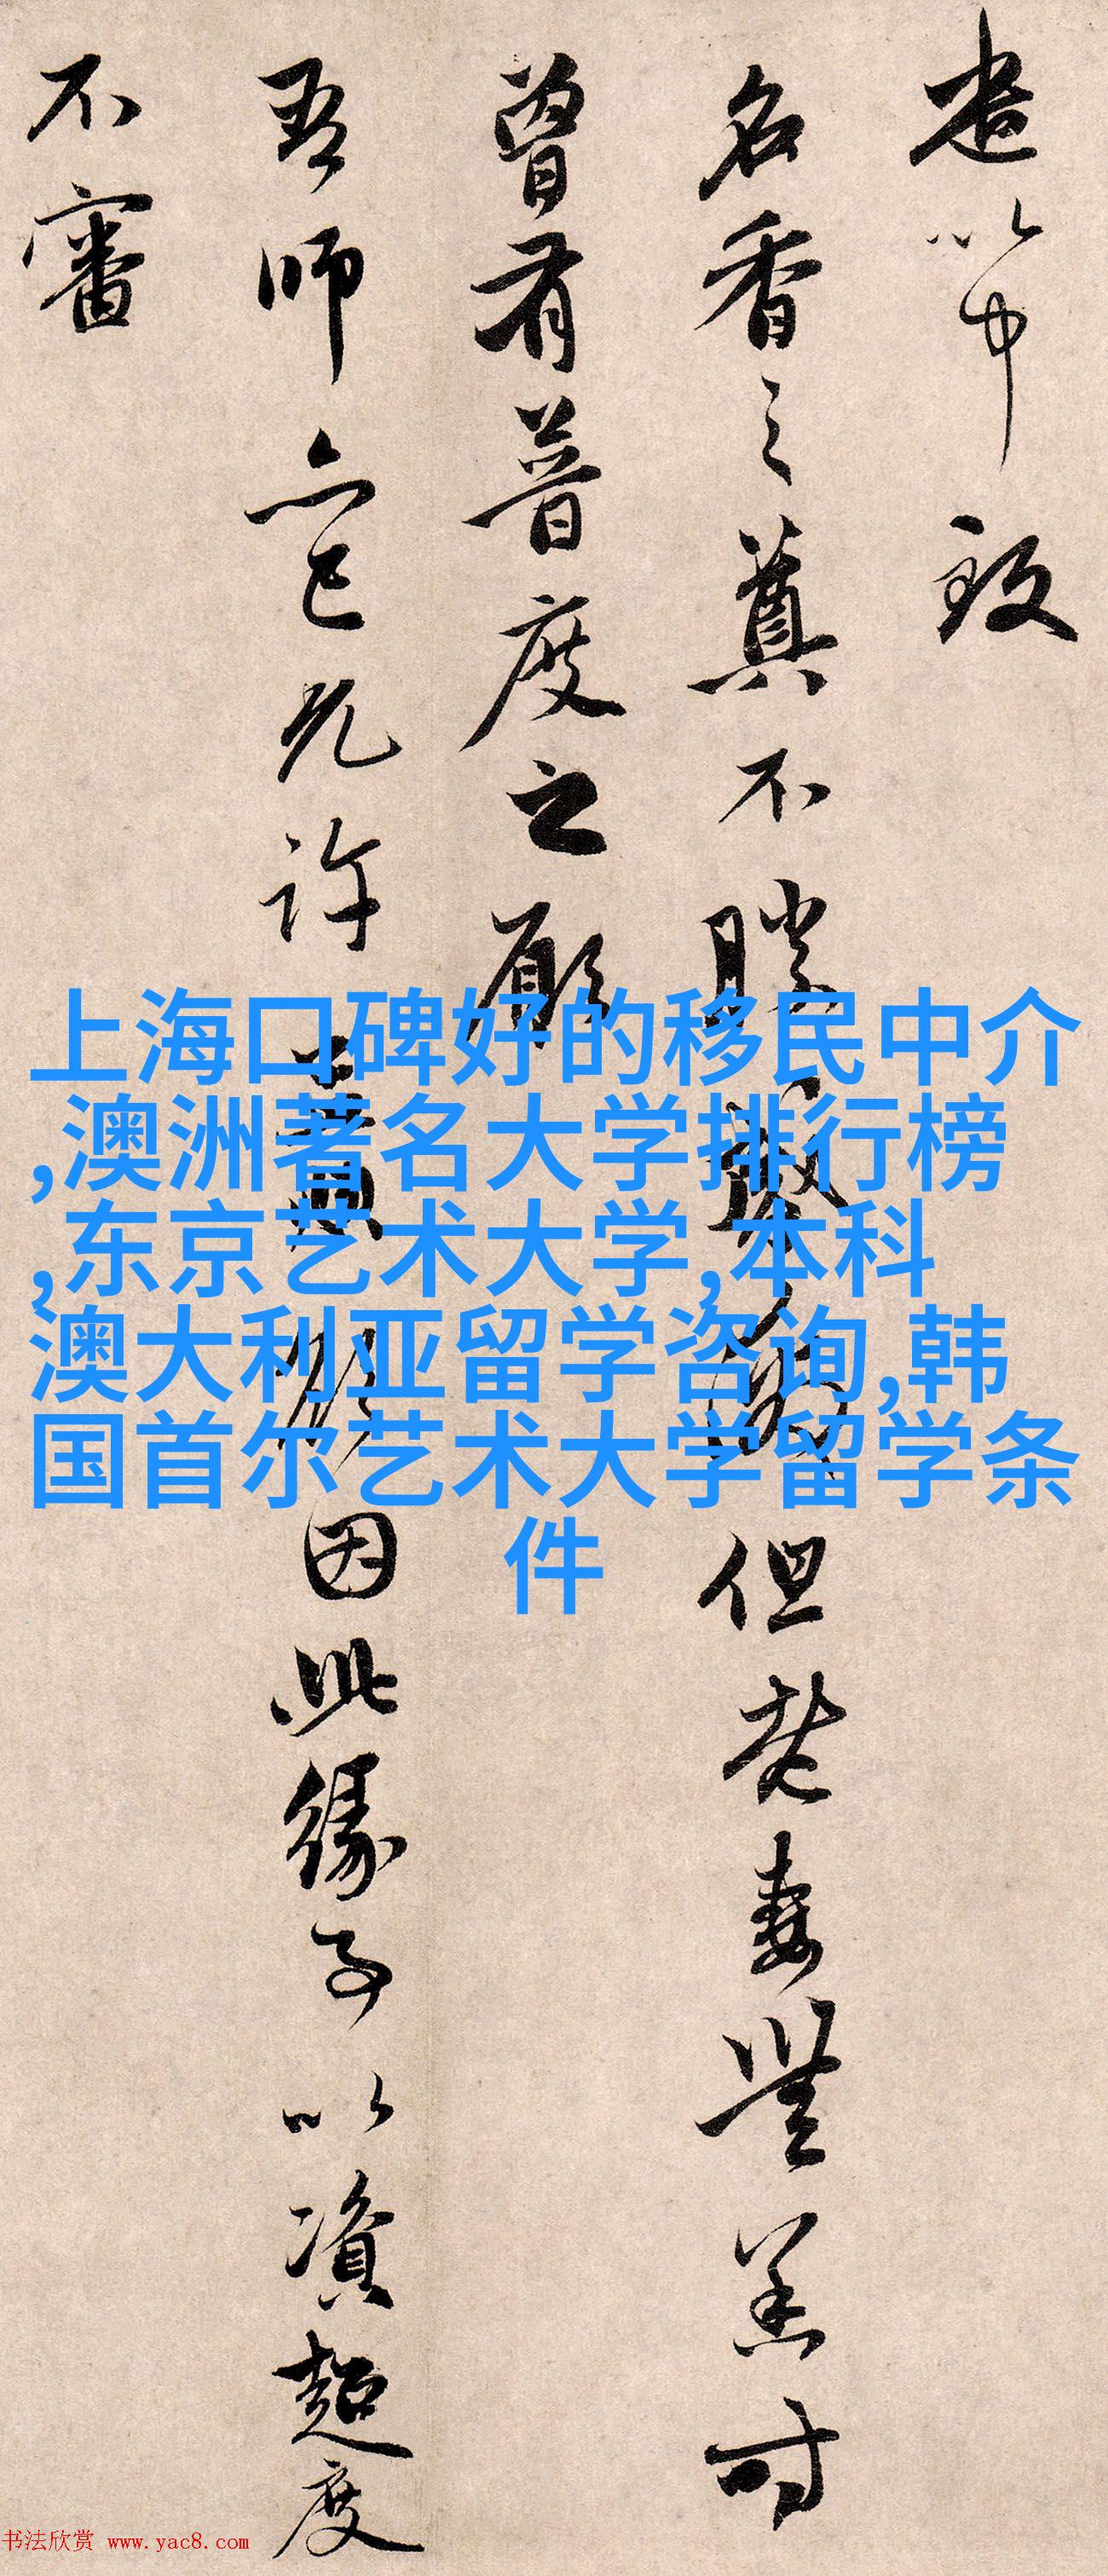 遣以中致
名香之奠不勝但老妻無恙時
曾有普度之願
吾師亦已允許因此緣事以資超度
不審
上海口碑好的移民中介
,澳洲著名大学排行榜
,东京艺术大学,本科
澳大利亚留学咨询,韩
国首尔艺术大学留学条
件
书法欣赏 www.yac8.com